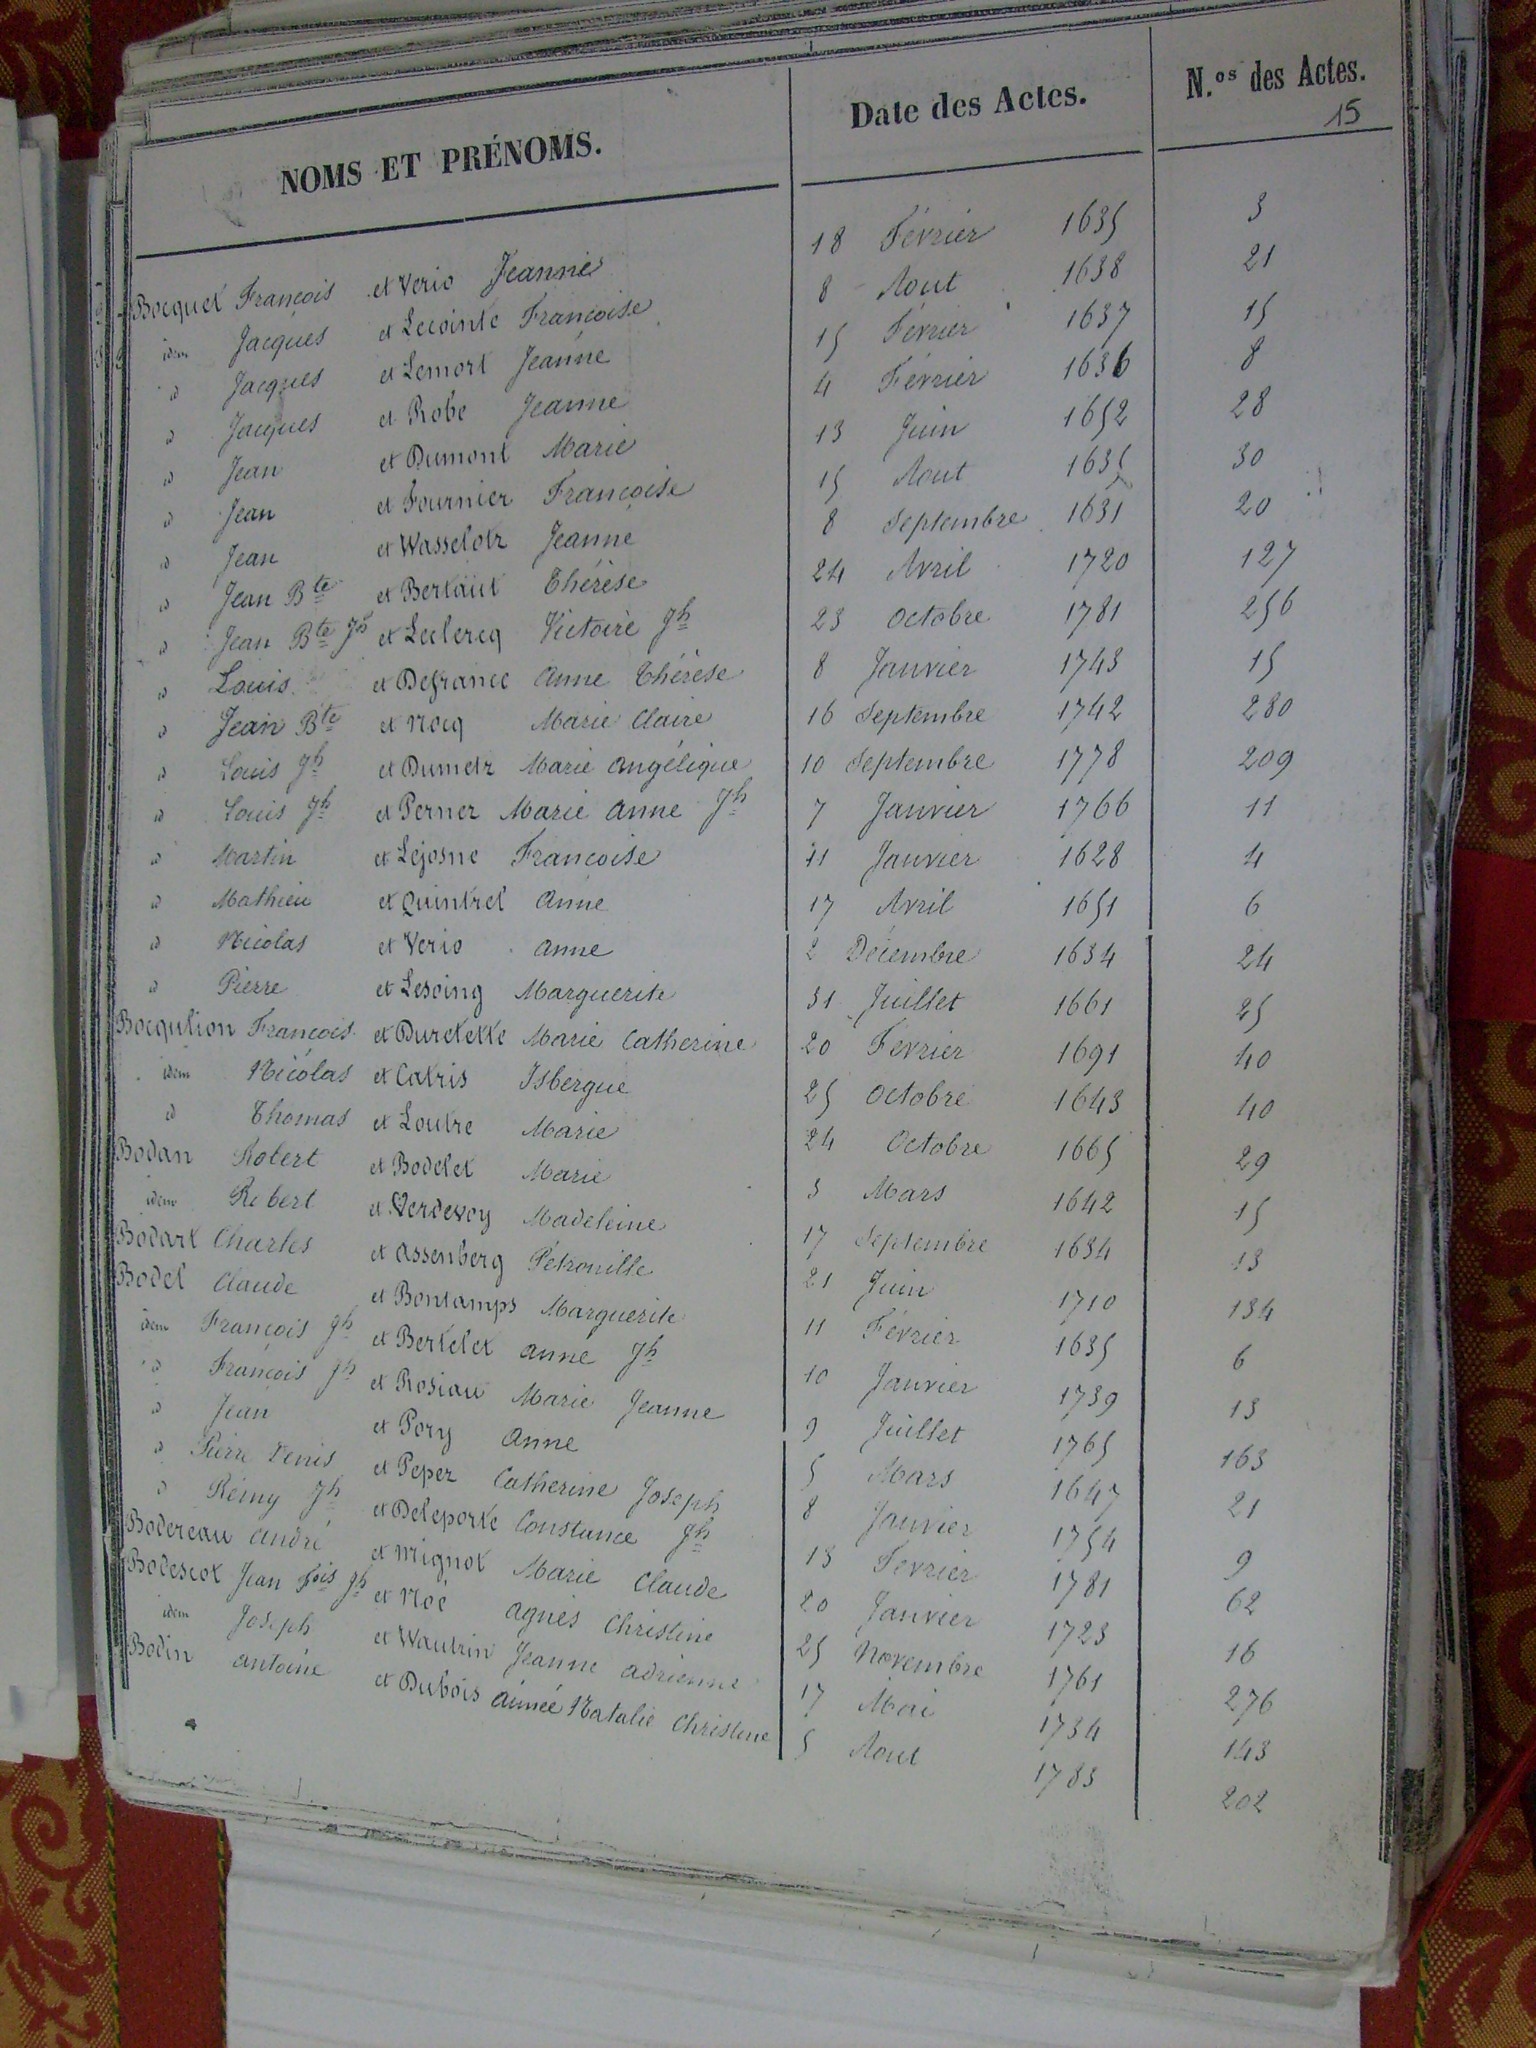 NOMS ET PRÉNOMS. Date des Actes. N.os des Actes.
15
Bocquet François et Verio Jeanne 18 Février 1635 3
idem Jacques et Lecointe Françoise 8 Aout 1638 21
id Jacques et Lemort Jeanne 15 Février 1637 15
id Jacques et Robe Jeanne 4 Février 1636 8
id Jean et Dumont Marie 13 Juin 1652 28
id Jean et Fournier Françoise 15 Aout 1635 30
id Jean et Wasselotz Jeanne 8 Septembre 1631 20
id Jean Bte et Bertaut Thérèse 24 Avril 1720 127
id Jean Bte Jh et Leclercq Victoire Jh 23 Octobre 1781 256
id Louis et Defrance Anne Thérèse 8 Janvier 1743 15
id Jean Bte et Nocq Marie Claire 16 Septembre 1742 280
id Louis Jh et Dumetz Marie Angélique 10 Septembre 1778 209
id Louis Jh et Perner Marie Anne Jh 7 Janvier 1766 11
id Martin et Lejosne Françoise 11 Janvier 1628 4
id Mathieu et Quintrel Anne 17 Avril 1651 6
id Nicolas et Verio Anne 2 Décembre 1634 24
id Pierre et Lesoing Marguerite 31 Juillet 1661 25
Bocqulion François et Duretette Marie Catherine 20 Février 1691 40
idem Nicolas et Catris Isbergue 25 Octobre 1643 40
id Thomas et Loutre Marie 24 Octobre 1665 29
Bodan Robert et Bodelet Marie 3 Mars 1642 15
idem Robert et Verdevoy Madeleine 17 Septembre 1634 13
Bodart Charles et Assenberg Pétronille 21 Juin 1710 134
Bodel Claude et Bontamps Marguerite 11 Février 1635 6
idem François Jh et Bertelet Anne Jh 10 Janvier 1739 13
id François Jh et Rosiau Marie Jeanne 9 Juillet 1765 163
id Jean et Pory Anne 5 Mars 1647 21
id Pierre Denis et Peper Catherine Joseph 8 Janvier 1754 9
id Rémy Jh et Deleporte Constance Jh 13 Février 1781 62
Bodereau André et Mignot Marie Claude 20 Janvier 1723 16
Bodescot Jean Fois Jh et Noé Agnès Christine 25 Novembre 1761 276
idem Joseph et Wautrin Jeanne Adrienne 17 Mai 1734 143
Bodin Antoine et Dubois Aimée Natalie Christine 5 Aout 1783 202